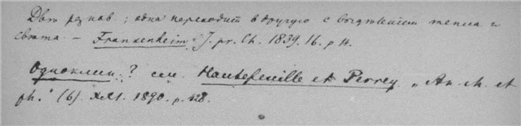 Две разнов.; одна переходит в другую с выделением тепла и
света. – Frankenheim J. pr. Ch. 1839. 16. p. 14.
Одноклин? см. Hautefeuille et Perrey „An. ch. et
ph." (6). XXI. 1890. p. 428.